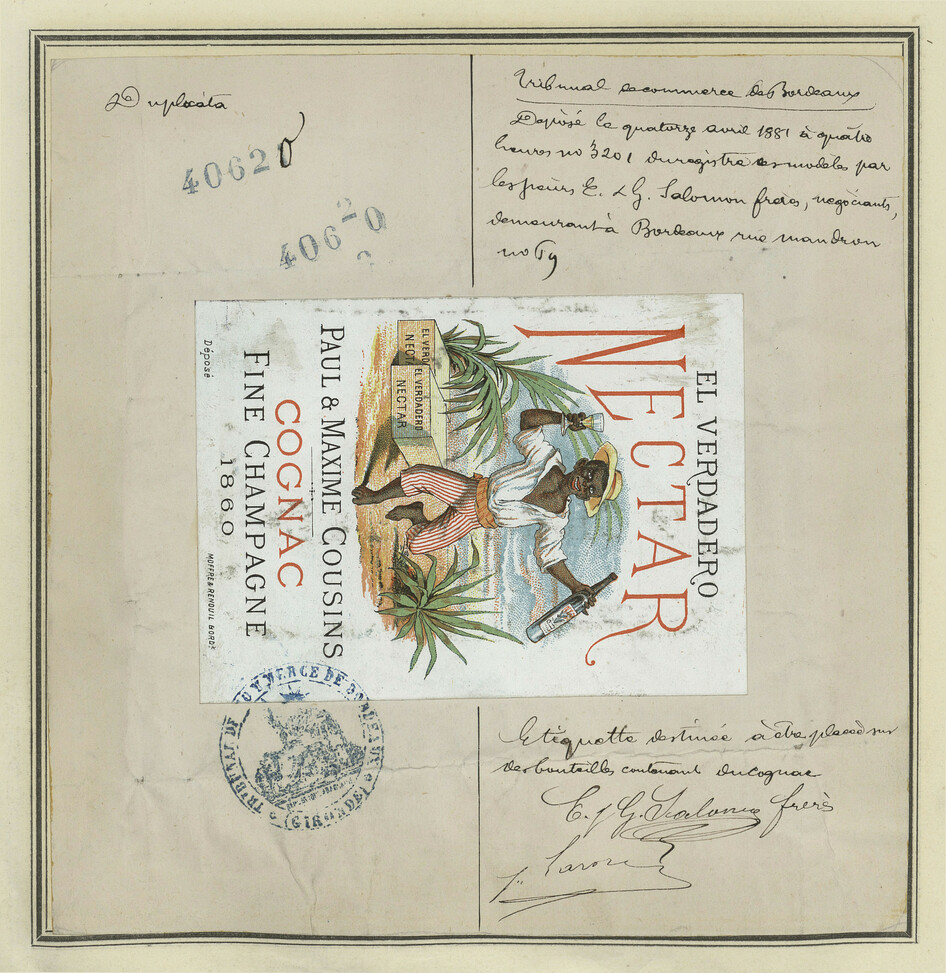 Duplicata
40620
40620
Tribunal de commerce de Bordeaux
Déposé le quatorze avril 1881 à quatre
heures no 3201 du registre des modèles par
les sieurs E. & G. Salomon frères, négociants,
demeurant à Bordeaux rue mandron
no
EL VERDADERO
NECTAR
EL VERD
NECTA
EL VERDADERO
NECTAR
PAUL & MAXIME COUSINS
COGNAC
FINE CHAMPAGNE
1860
Déposé
MOFFRE & RENOUIL BORDX
TRIBUNAL DE COMMERCE DE BORDEAUX
(GIRONDE)
Etiquette destinée à être placée sur
des bouteilles contenant du cognac
E. & G. Salomon frères